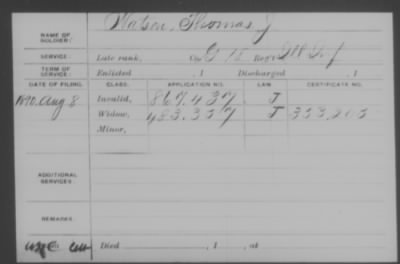 NAME OF SOLDIER: Watson, Thomas J
SERVICE: Late rank, Co. G 18 Reg't Ill Inf
TERM OF SERVICE: Enlisted , 1 Discharged , 1
DATE OF FILING. CLASS. APPLICATION NO. LAW. CERTIFICATE NO.
1890. Aug 8 Invalid, 867.437 J
Widow, 483.357 J 353,205
Minor,
ADDITIONAL SERVICES:
REMARKS:
Died , 1 , at